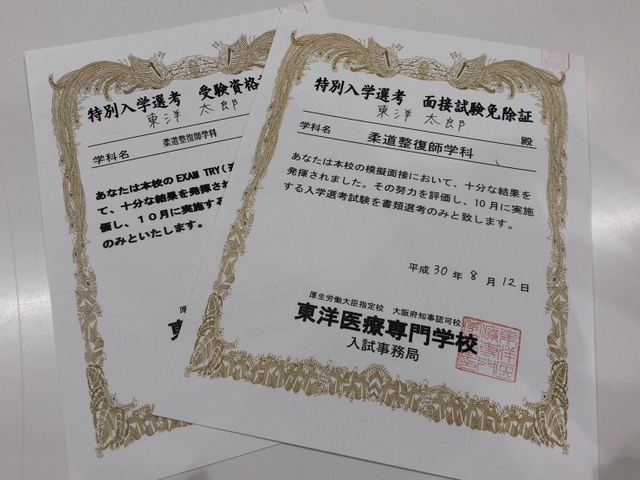 特別入学選考 受験資格
東洋 太郎
学科名 柔道整復師学科
あなたは本校の EXAM TRY(
て、十分な結果を発揮され
価し、10月に実施する
のみといたします。
厚生
東
特別入学選考 面接試験免除証
東洋 太郎 殿
学科名 柔道整復師学科
あなたは本校の模擬面接において、十分な結果を
発揮されました。その努力を評価し、10月に実施
する入学選考試験を書類選考のみと致します。
平成30年8月12日
厚生労働大臣指定校 大阪府知事認可校
東洋医療専門学校
入試事務局